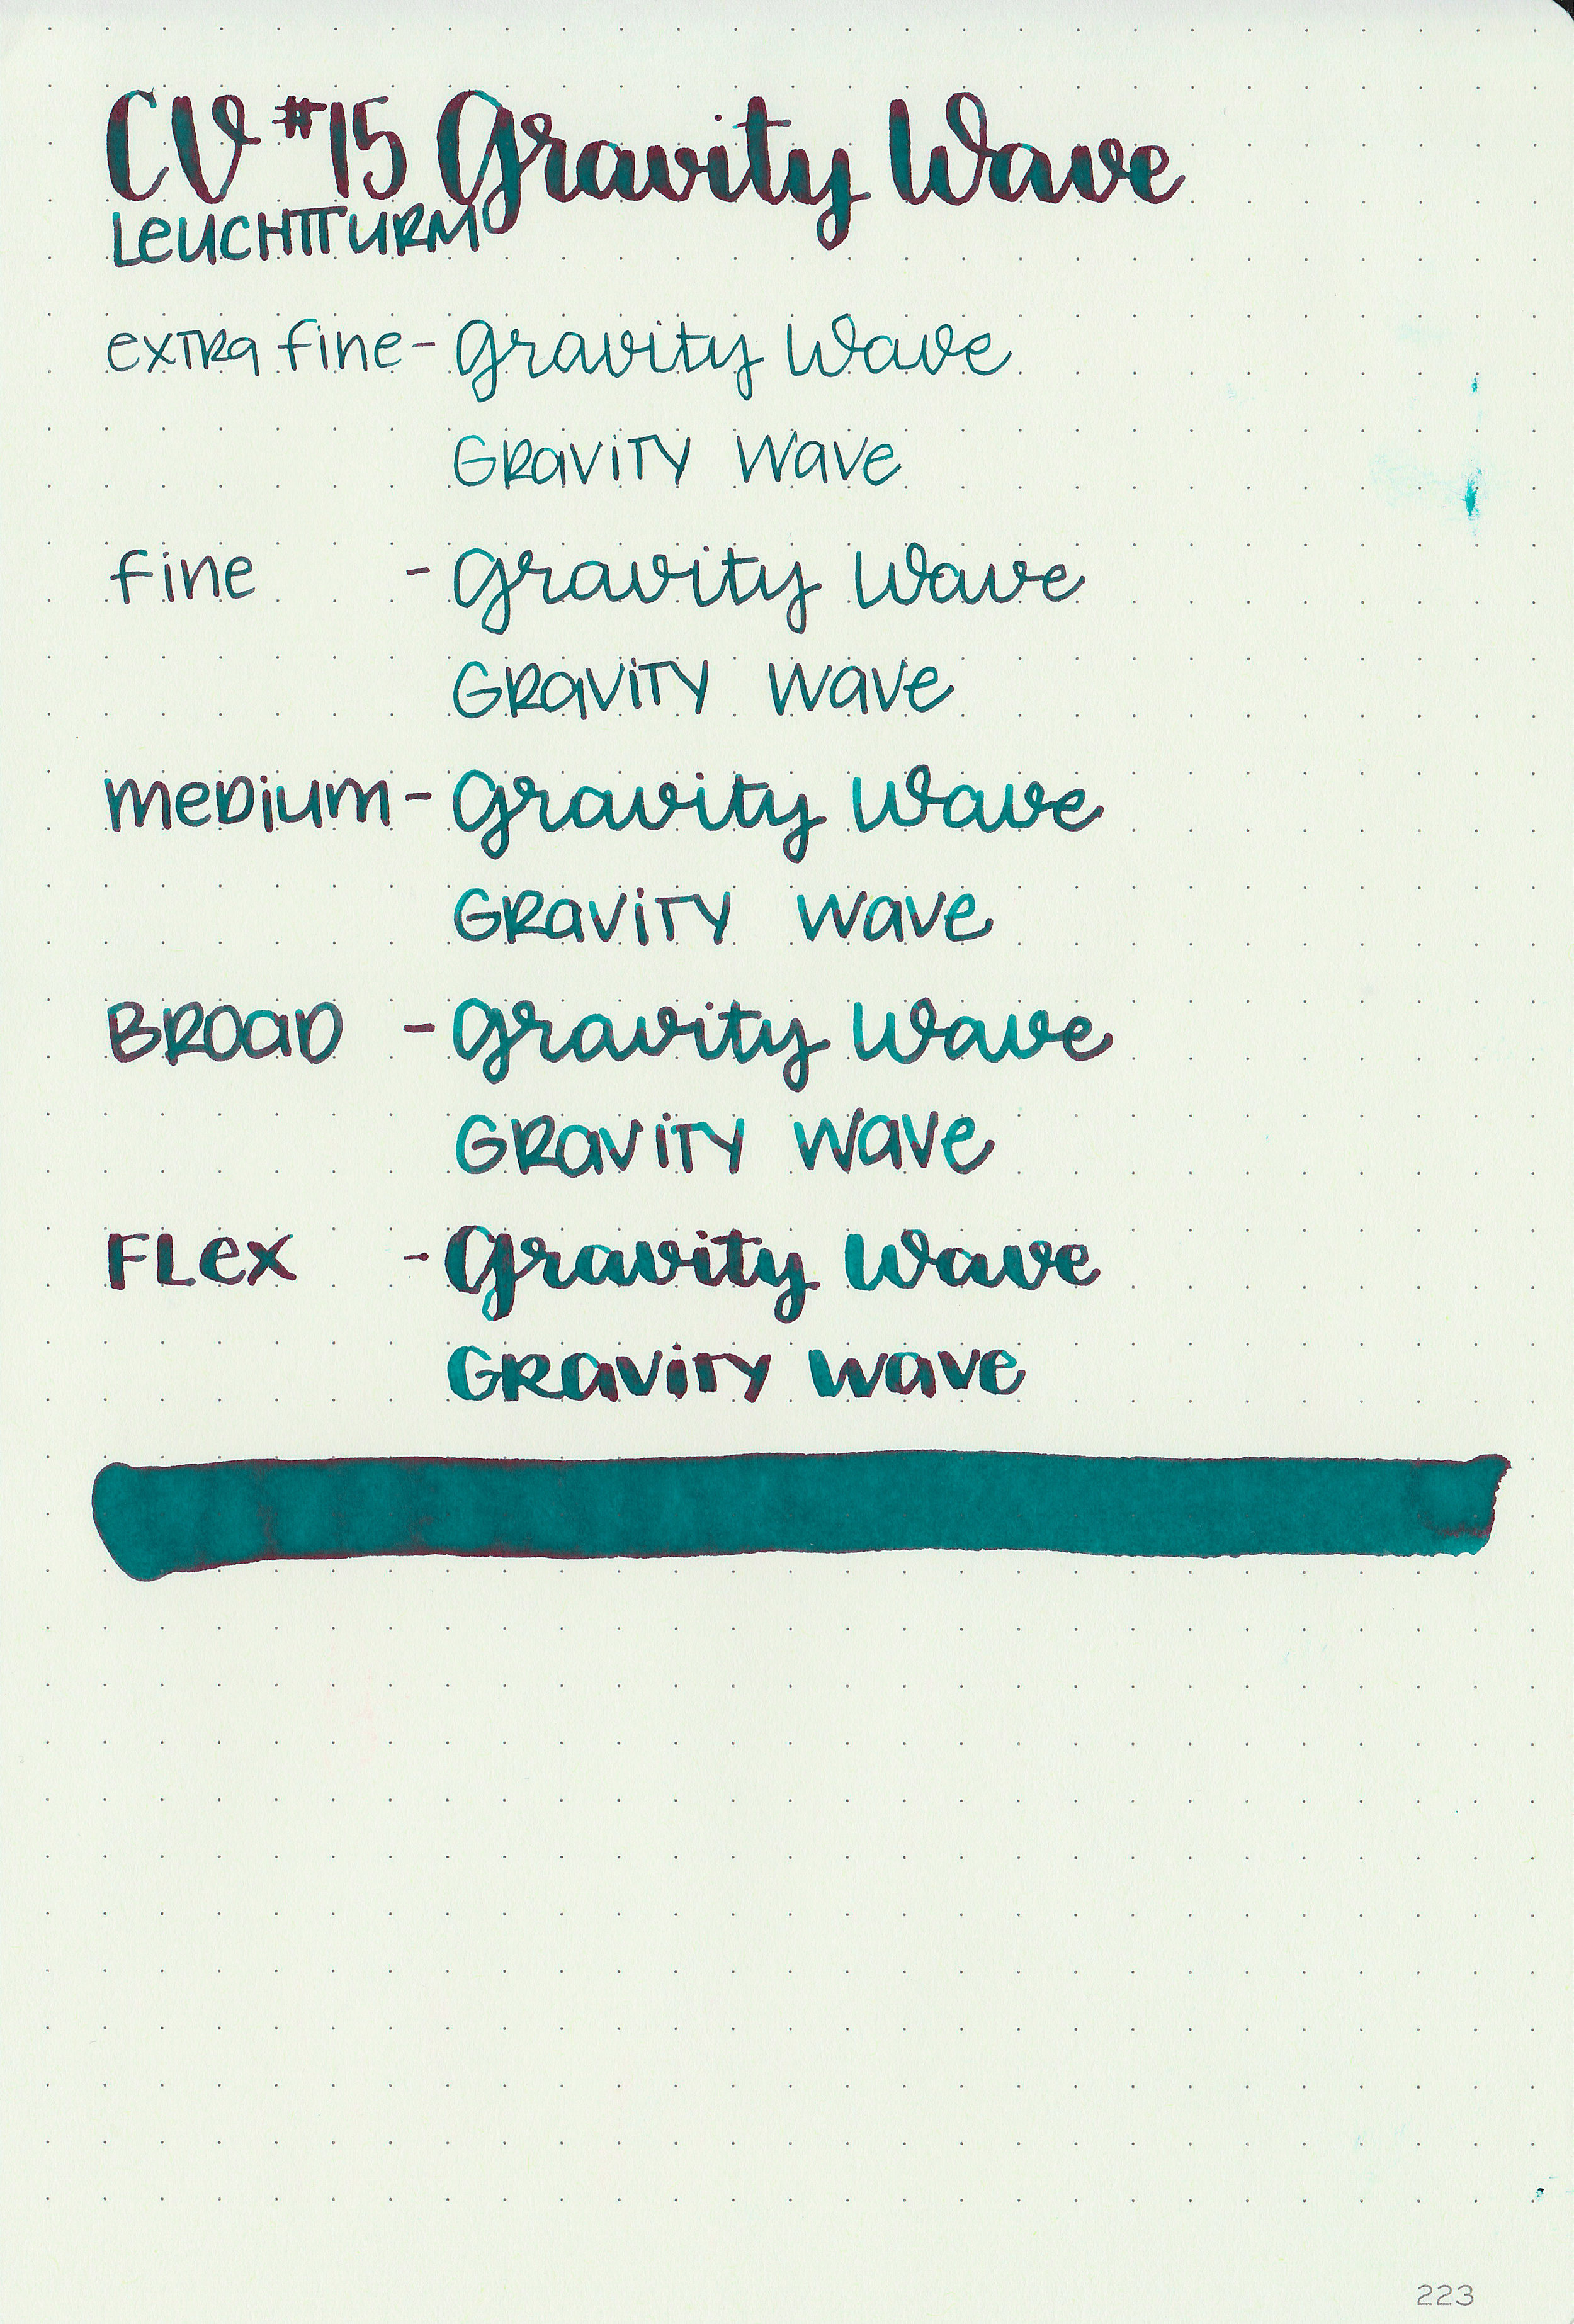 CV #15 Gravity Wave
LEUCHTTURM
extra fine - Gravity Wave
GRaviTY Wave
fine - Gravity Wave
GRaviTY Wave
meDium - Gravity Wave
GRaviTY Wave
BROaD - Gravity Wave
GRaviTY Wave
FLex - Gravity Wave
GRaviTY Wave
223